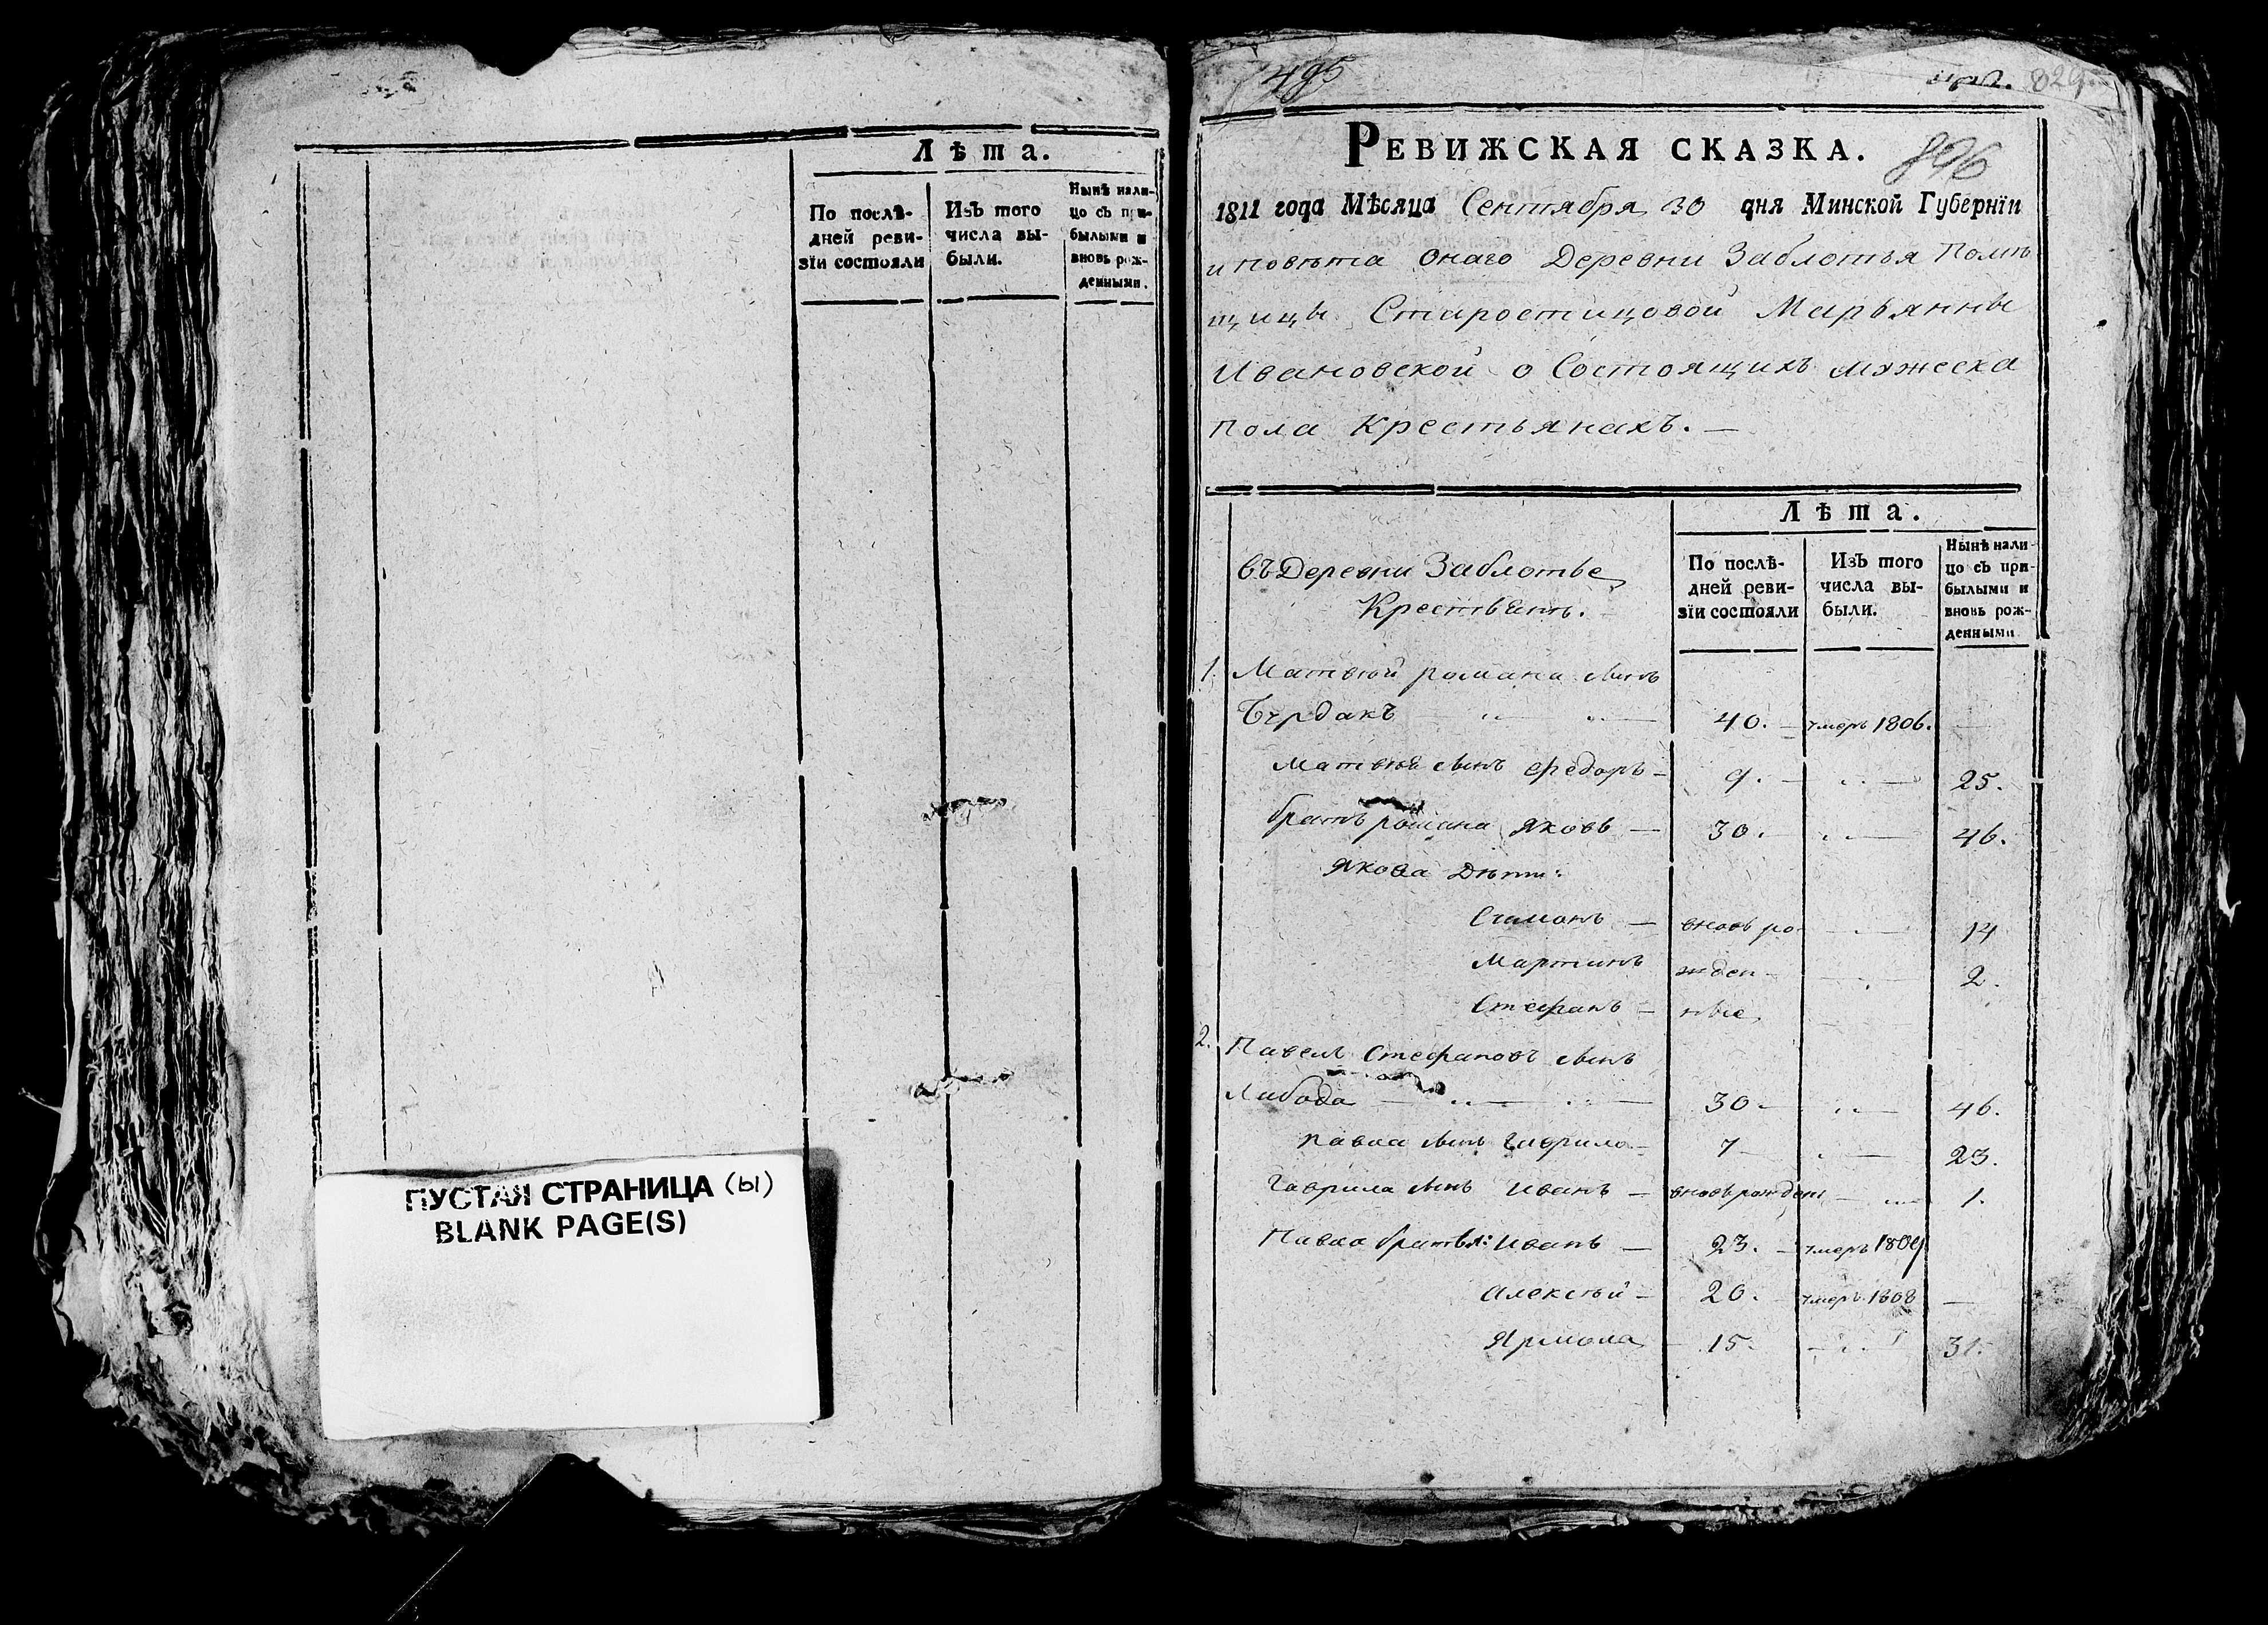 Лѣта.
По послѣ-
дней реви-
зїи состояли
Изъ того
числа вы-
были.
Нынѣ нали-
цо съ при-
былыми и
вновь рож-
денными.
ПУСТАЯ СТРАНИЦА (ы)
BLANK PAGE(S)
495
829
РЕВИЖСКАЯ СКАЗКА.
896
1811 года Мѣсяца Сентября 30 дня Минской Губернїи
и повѣта онаго Деревни Заблотья Помѣ
щицы Старостицовой Марьянны
Ивановской о Состоящихъ мужеска
пола Крестьянахъ. —
Лѣта.
въ Деревни Заблотье
Крестьянъ.
По послѣ-
дней реви-
зїи состояли
Изъ того
числа вы-
были.
Нынѣ нали-
цо съ при-
былыми и
вновь рож-
денными
1. Матвей романа сынъ
Бурдакъ 40. умеръ 1806. —
Матвея сынъ Федоръ — 9. — 25.
братъ романа Яковъ — 30. — 46.
Якова Дѣти:
Сымонъ — вновь ро- 14
Мартинъ жден- 2.
Стефанъ — ные
2. Павелъ Стефановъ сынъ
Либода 30 — 46.
Павла сынъ Гаврила — 7 — 23.
Гаврила сынъ Иванъ — вновь рожденъ — 1.
Павла братья: Иванъ — 23. — умеръ 1809
Алексей — 20. умеръ 1808 —
Ярмола — 15. — 31.